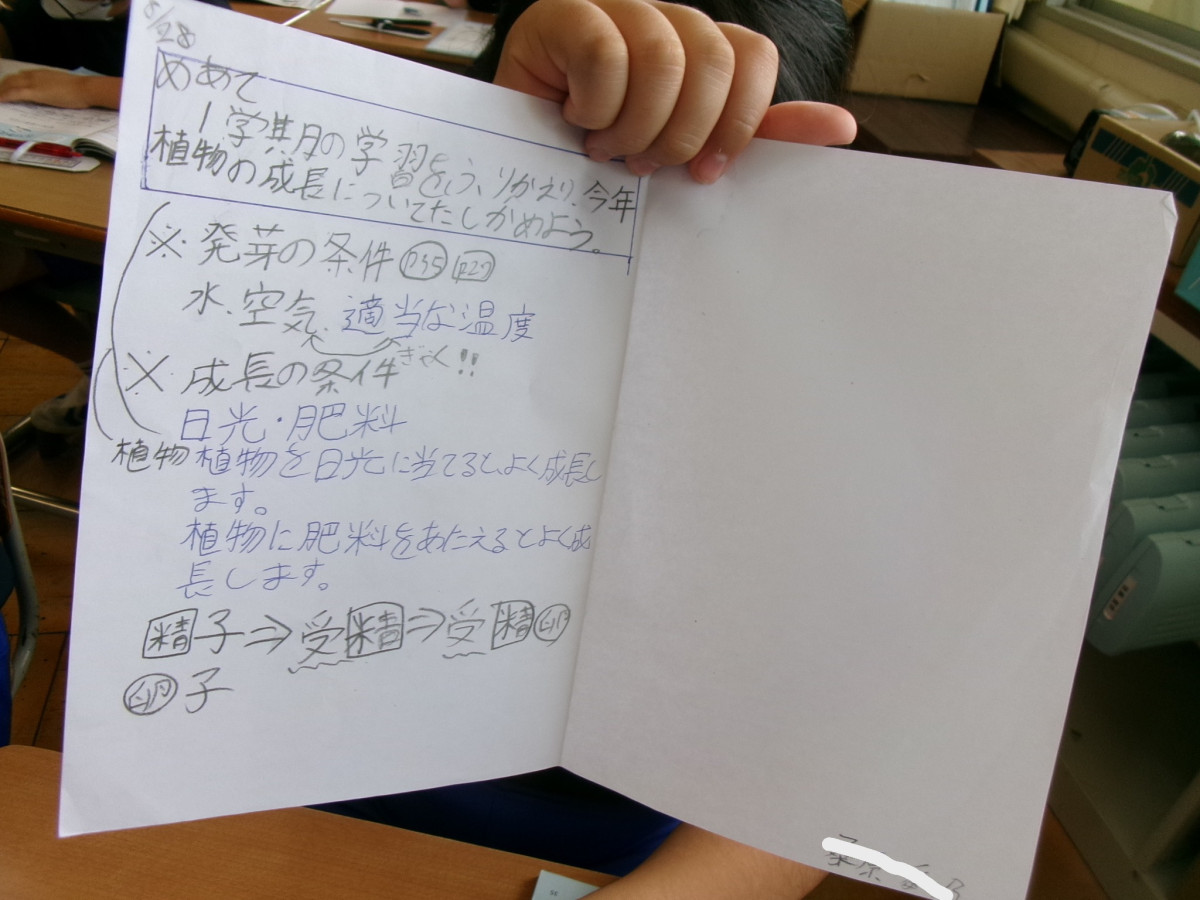 8/28
めあて
1学期の学習をふりかえり、今年
植物の成長についてたしかめよう。
※ 発芽の条件 P35 P27
水、空気、適当な温度
ぎゃく!!
※ 成長の条件
日光・肥料
植物 植物を日光に当てると、よく成長し
ます。
植物に肥料をあたえるとよく成
長します。
精子⇒受精⇒受精卵
卵子